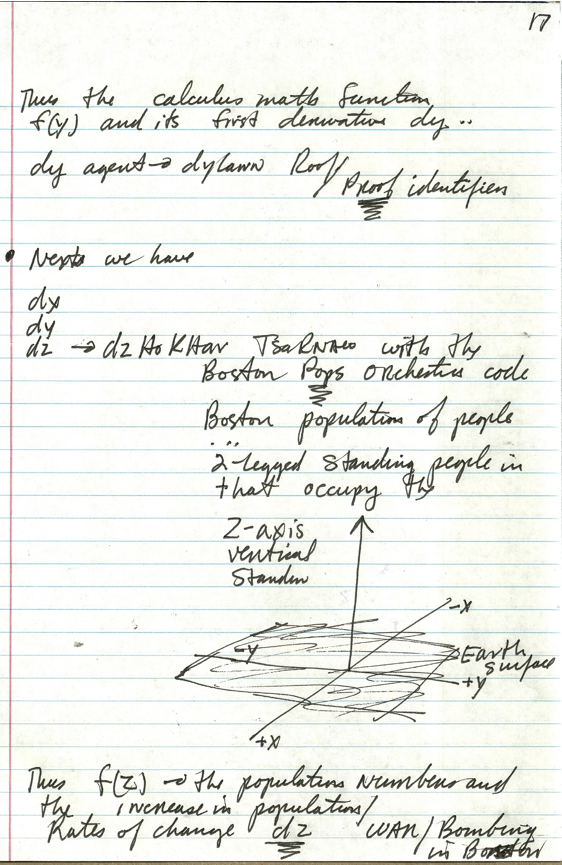 17
Thus the calculus math function
f(y) and its first derivative dy ..
dy agent → dylawn Roof/
Proof identifier
• Next we have
dx
dy
dz → dzHoKHar TsaRNaev with the
Boston Pops Orchestra code
Boston population of people
2-legged standing people in
that occupy the
Z-axis
vertical
Standin
-X
-Y
Earth
Surface
+Y
+X
Thus f(z) → the population numbers and
the increase in population/
Rates of change dz WAR/Bombing
in Boston